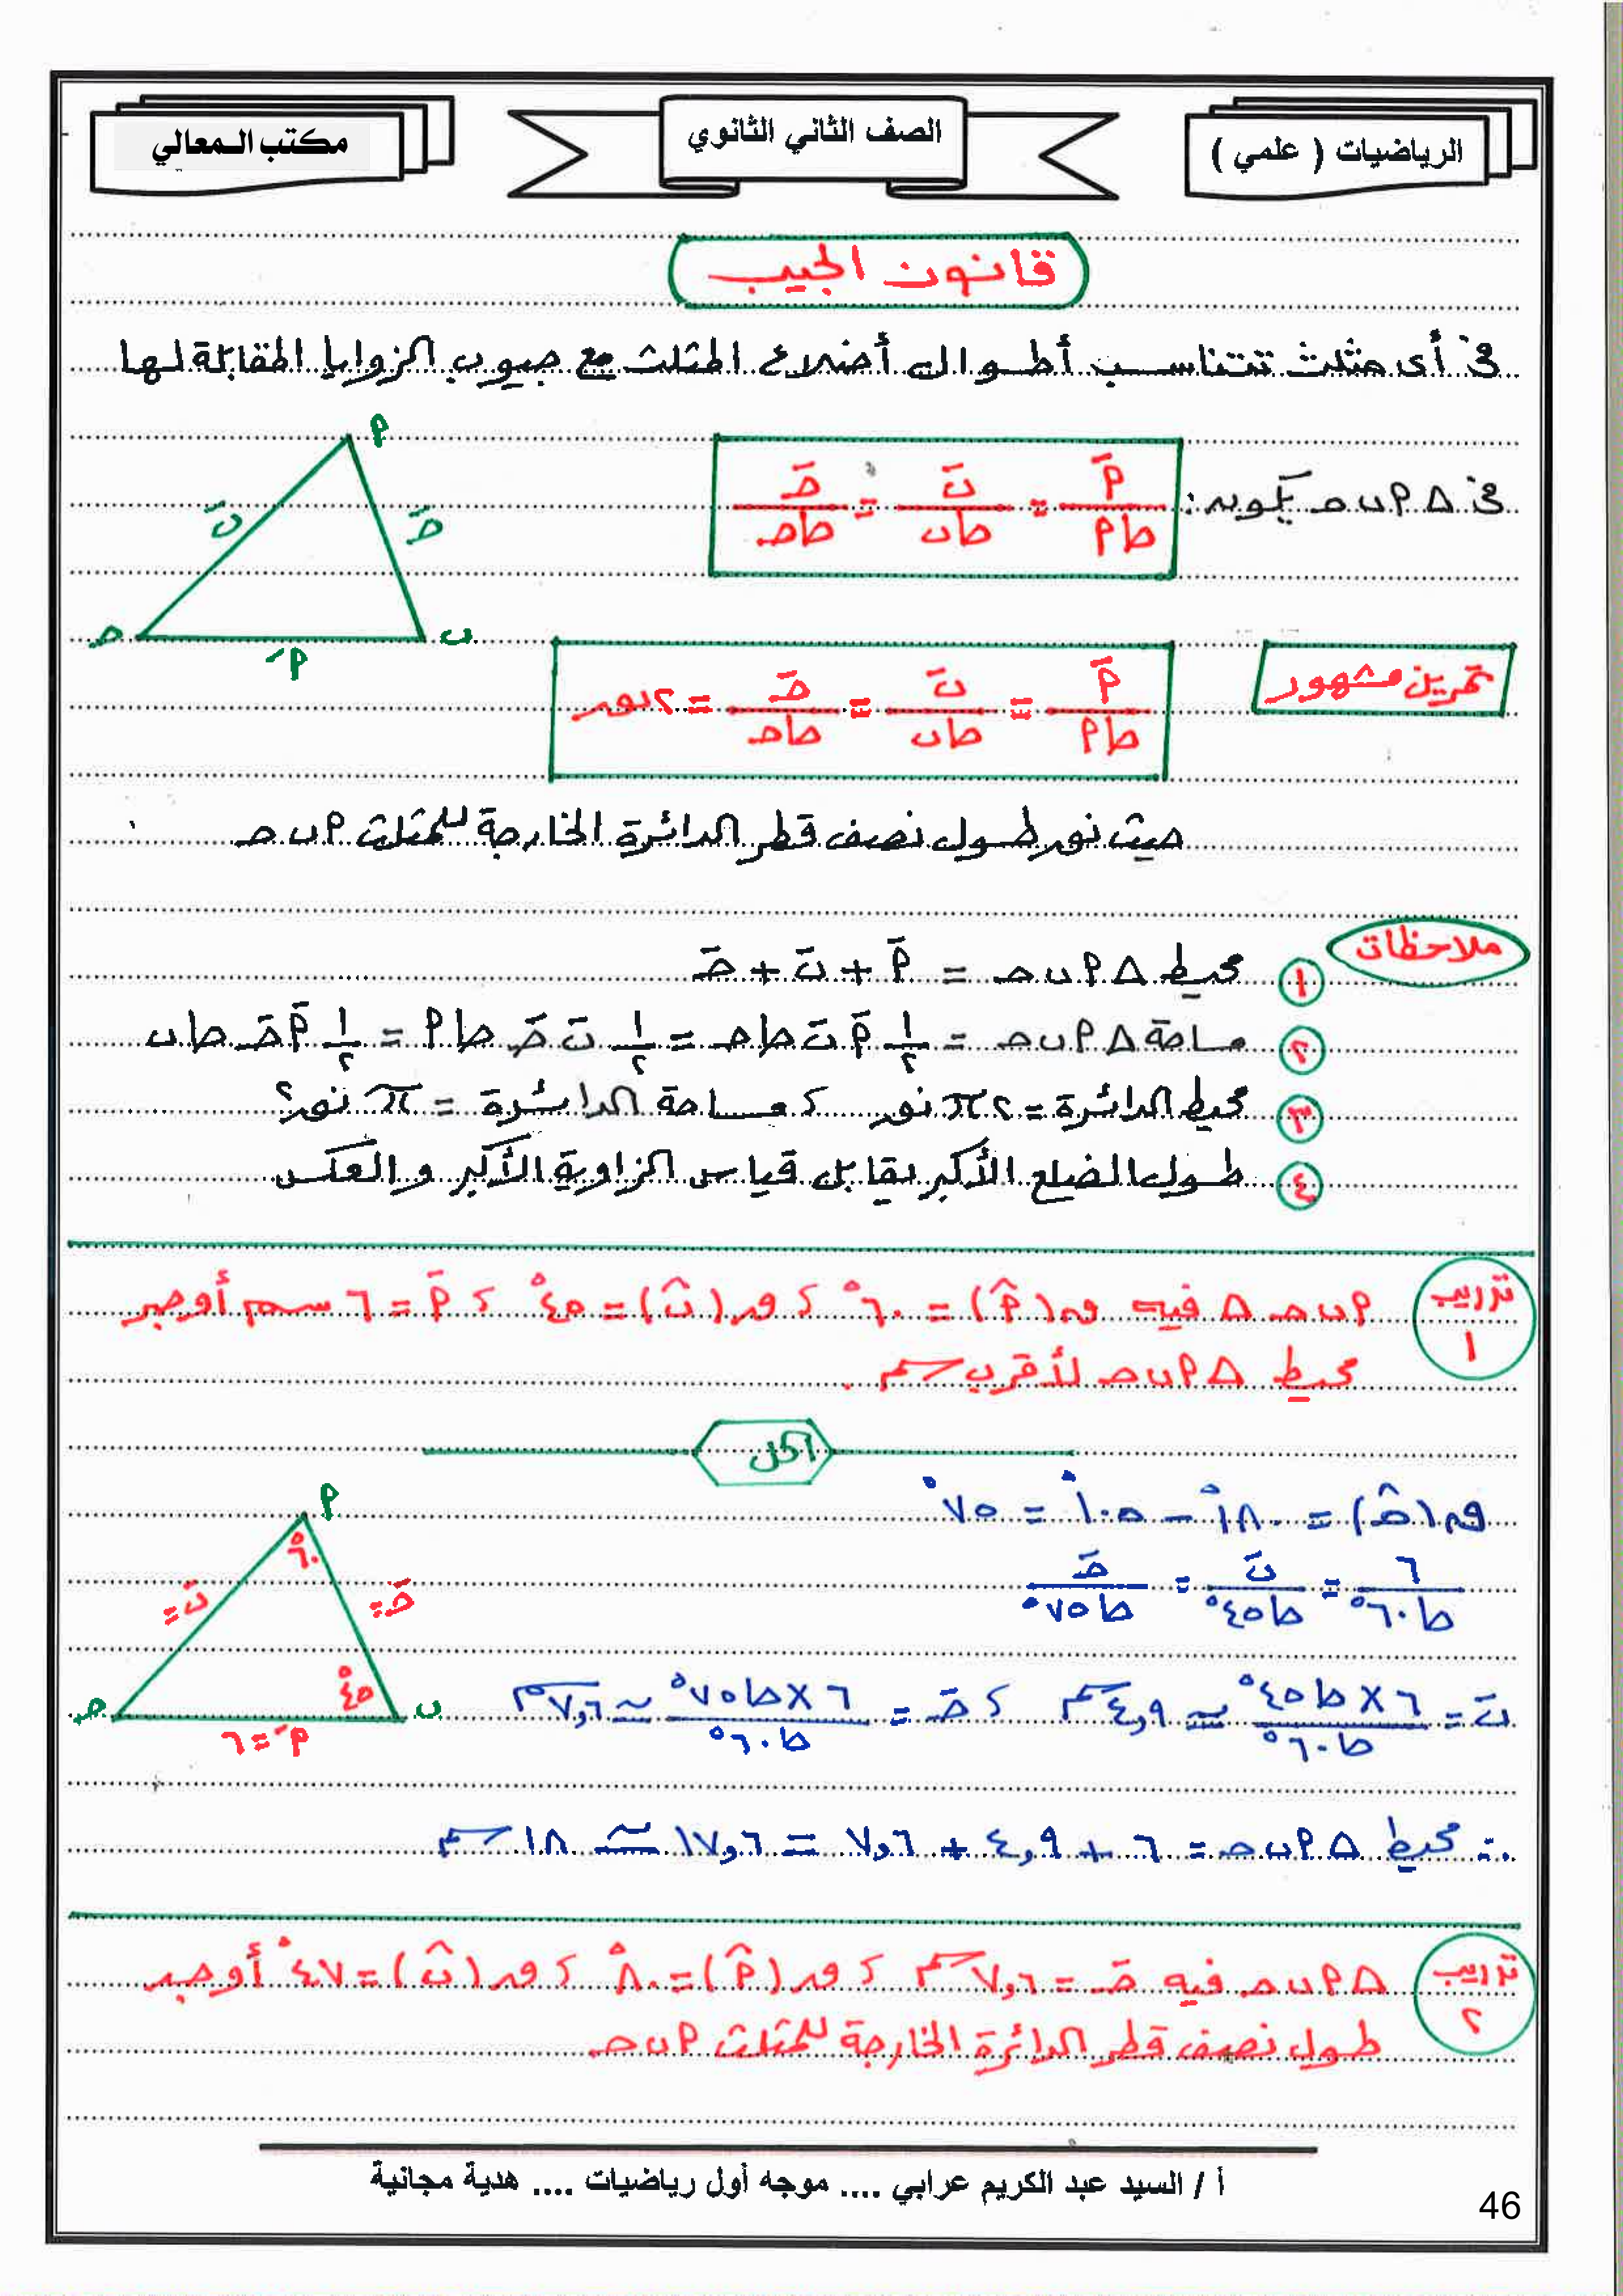 الرياضيات ( علمي )
الصف الثاني الثانوي
مكتب المعالي
قانون الجيب
في أى مثلث تتناسب أطوال أضلاع المثلث مع جيوب الزوايا المقابلة لها
في △ أ ب حـ يكون : أَ / حا أ = بَ / حا ب = حـَ / حا حـ
أ
بَ
حـَ
حـ
ب
أَ
تمرين مشهور
أَ / حا أ = بَ / حا ب = حـَ / حا حـ = ٢ نور
حيث نور طول نصف قطر الدائرة الخارجة للمثلث أ ب حـ
ملاحظات
١ محيط △ أ ب حـ = أَ + بَ + حـَ
٢ مساحة △ أ ب حـ = ١/٢ أَ بَ حا حـ = ١/٢ بَ حـَ حا أ = ١/٢ أَ حـَ حا ب
٣ محيط الدائرة = ٢ π نور ، مساحة الدائرة = π نور٢
٤ طول الضلع الأكبر يقابل قياس الزاوية الأكبر والعكس
تدريب ١
أ ب حـ △ فيه ق(أ̂) = ٦٠° ، ق(ب̂) = ٤٥° ، أَ = ٦ سم أوجد
محيط △ أ ب حـ لأقرب سم .
الحل
ق(حـ̂) = ١٨٠° − ١٠٥° = ٧٥°
٦ / حا ٦٠° = بَ / حا ٤٥° = حـَ / حا ٧٥°
أ
٦٠°
بَ =
حـَ =
٤٥°
حـ
ب
أَ = ٦
بَ = ٦ × حا ٤٥° / حا ٦٠° ≃ ٤,٩ سم ، حـَ = ٦ × حا ٧٥° / حا ٦٠° ≃ ٧,٦ سم
∴ محيط △ أ ب حـ = ٦ + ٤,٩ + ٧,٦ = ١٧,٦ ≃ ١٨ سم
تدريب ٢
△ أ ب حـ فيه حـَ = ٧,٦ سم ، ق(أ̂) = ٨٠° ، ق(ب̂) = ٤٧° أوجد
طول نصف قطر الدائرة الخارجة للمثلث أ ب حـ
أ / السيد عبد الكريم عرابي .... موجه أول رياضيات .... هدية مجانية
46